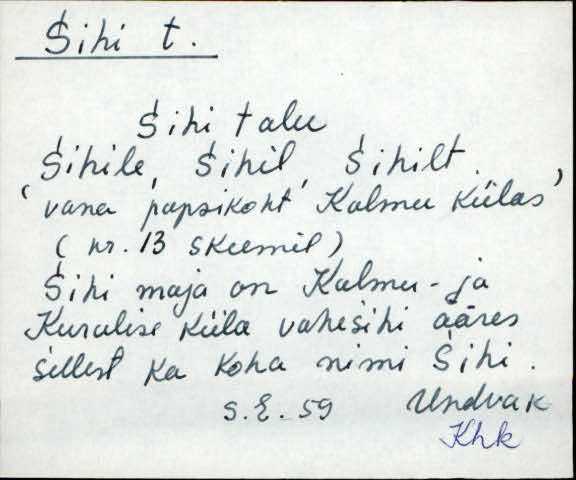 Sihi t.
Sihi talu
Sihile, Sihil, Sihilt.
'vana popsikoht' Kalmu külas'
(nr. 13 skeemil)
Sihi maja on Kalmu- ja
Kuralise küla vahesihi ääres
sellest ka koha nimi Sihi.
S.E. 59 Undvak
Khk